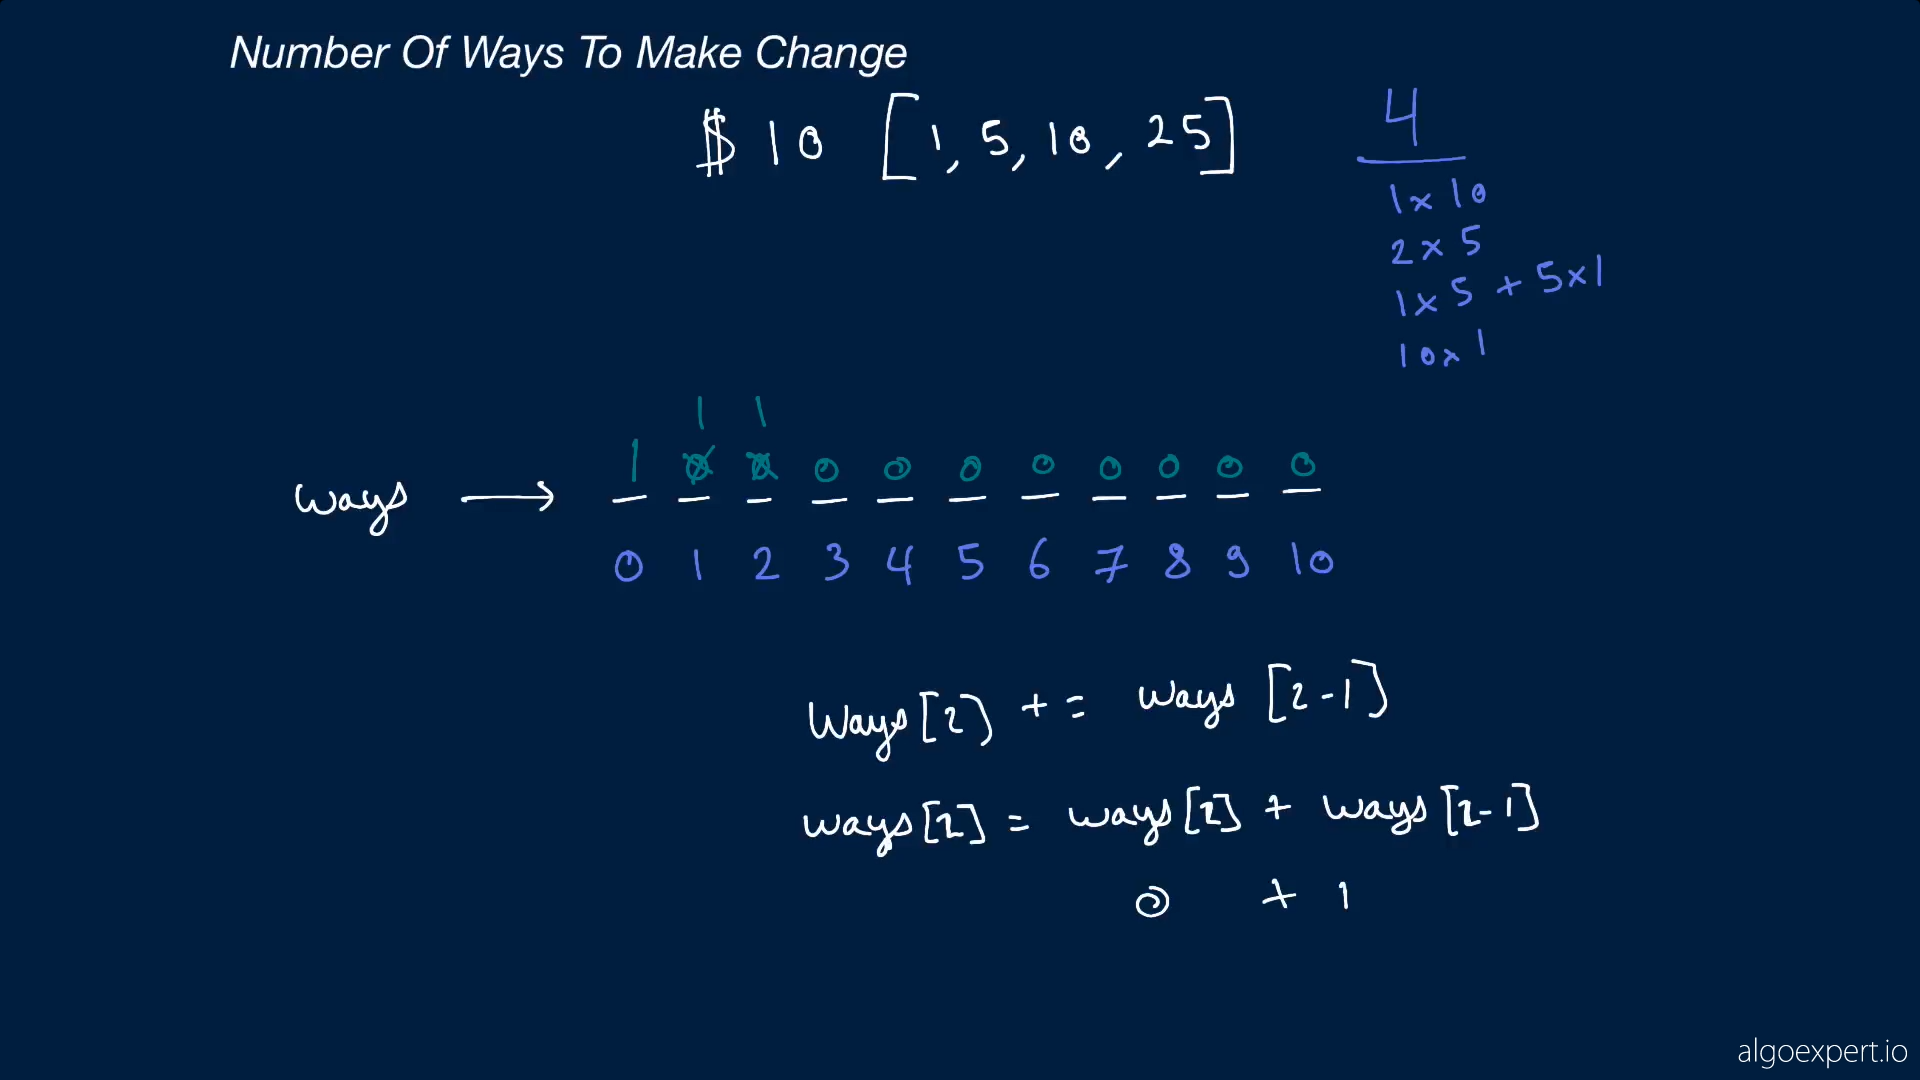 Number Of Ways To Make Change
$ 10 [1, 5, 10, 25]
4
1x10
2x5
1x5 + 5x1
10x1
1 1
1 0 0 0 0 0 0 0 0 0 0
ways →
0 1 2 3 4 5 6 7 8 9 10
Ways[2] += ways [2-1]
ways[2] = ways[2] + ways[2-1]
0 + 1
algoexpert.io